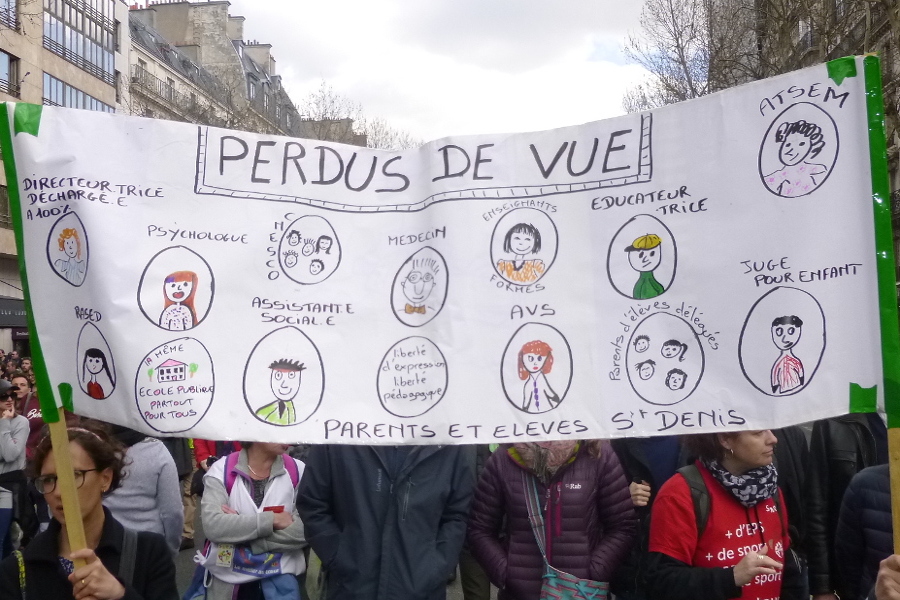 PERDUS DE VUE
ATSEM
DIRECTEUR.TRICE
DÉCHARGÉ.E
A 100%
PSYCHOLOGUE
CNESCO
MEDECIN
ENSEIGNANTS
FORMÉS
EDUCATEUR
TRICE
JUGE
POUR ENFANT
RASED
LA MÊME
ECOLE PUBLIQUE
PARTOUT
POUR TOUS
ASSISTANTE
SOCIAL.E
liberté
d'expression
liberté
pédagogique
AVS
Parents d'élèves délégués
PARENTS ET ELEVES ST DENIS
Rab
+ d'EPS
+ de sport
+ de spo